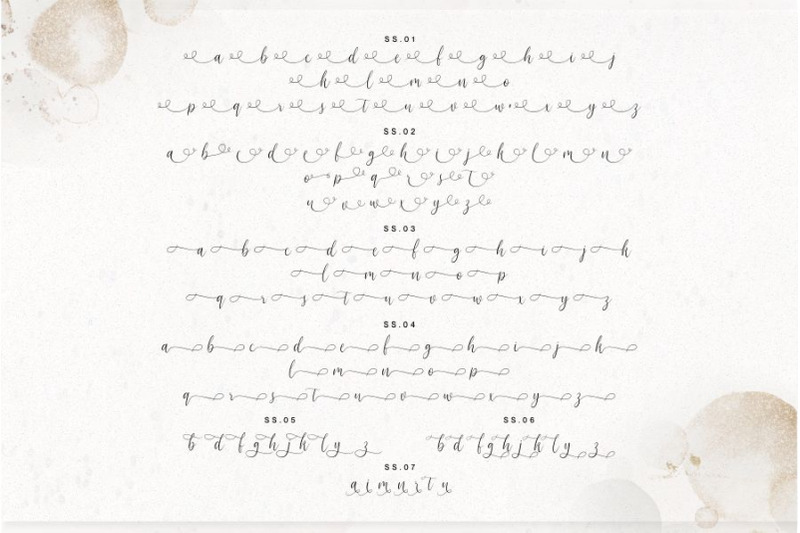 SS.01
a b c d e f g h i j
k l m n o
p q r s t u v w x y z
SS.02
a b c d e f g h i j k l m n
o p q r s t
u v w x y z
SS.03
a b c d e f g h i j k
l m n o p
q r s t u v w x y z
SS.04
a b c d e f g h i j k
l m n o p
q r s t u v w x y z
SS.05 SS.06
b d f g h j k l y z b d f g h j k l y z
SS.07
a i m n r t u